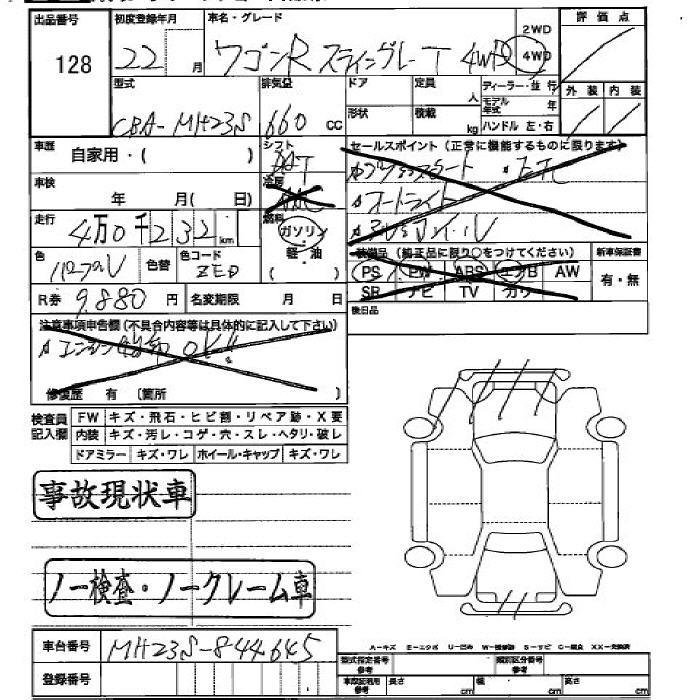 出品番号 初度登録年月 車名・グレード 2WD 4WD 評価点
128 22 月 ワゴンR スティングレー T 4WD
型式 排気量 ドア 定員 人 ディーラー・並行 外装 内装
CBA-MH23S 660 cc 形状 積載 kg モデル年式 年 ハンドル 左・右
車歴 自家用・( ) シフト セールスポイント(正常に機能するものに限ります)
AT プッシュスタート
車検 年 月( 日) 冷房 オートライト
走行 4万0千232 km 燃料 ガソリン アルミホイル
軽・油 ( )
色 パープル 色替 色コード ZED 装備品(純正品に限り○をつけてください) 新車保証書
PS PW ABS エアB AW 有・無
R券 9,880 円 名変期限 月 日 SR ナビ TV カワ
注意事項申告欄(不具合内容等は具体的に記入して下さい) 後日品
エンジン始動 OK!!
修復歴 有 (箇所 )
検査員記入欄 FW キズ・飛石・ヒビ割・リペア跡・X要
内装 キズ・汚レ・コゲ・穴・スレ・ヘタリ・破レ
ドアミラー キズ・ワレ ホイール・キャップ キズ・ワレ
事故現状車
ノー検査・ノークレーム車
A-キズ E-エクボ U-凹み W-補修跡 S-サビ C-腐食 XX-交換済
車台番号 MH23S-844645
型式指定番号 参考 類別区分番号 参考
登録番号 車検証利用 参考 長さ cm 幅 cm 高さ cm